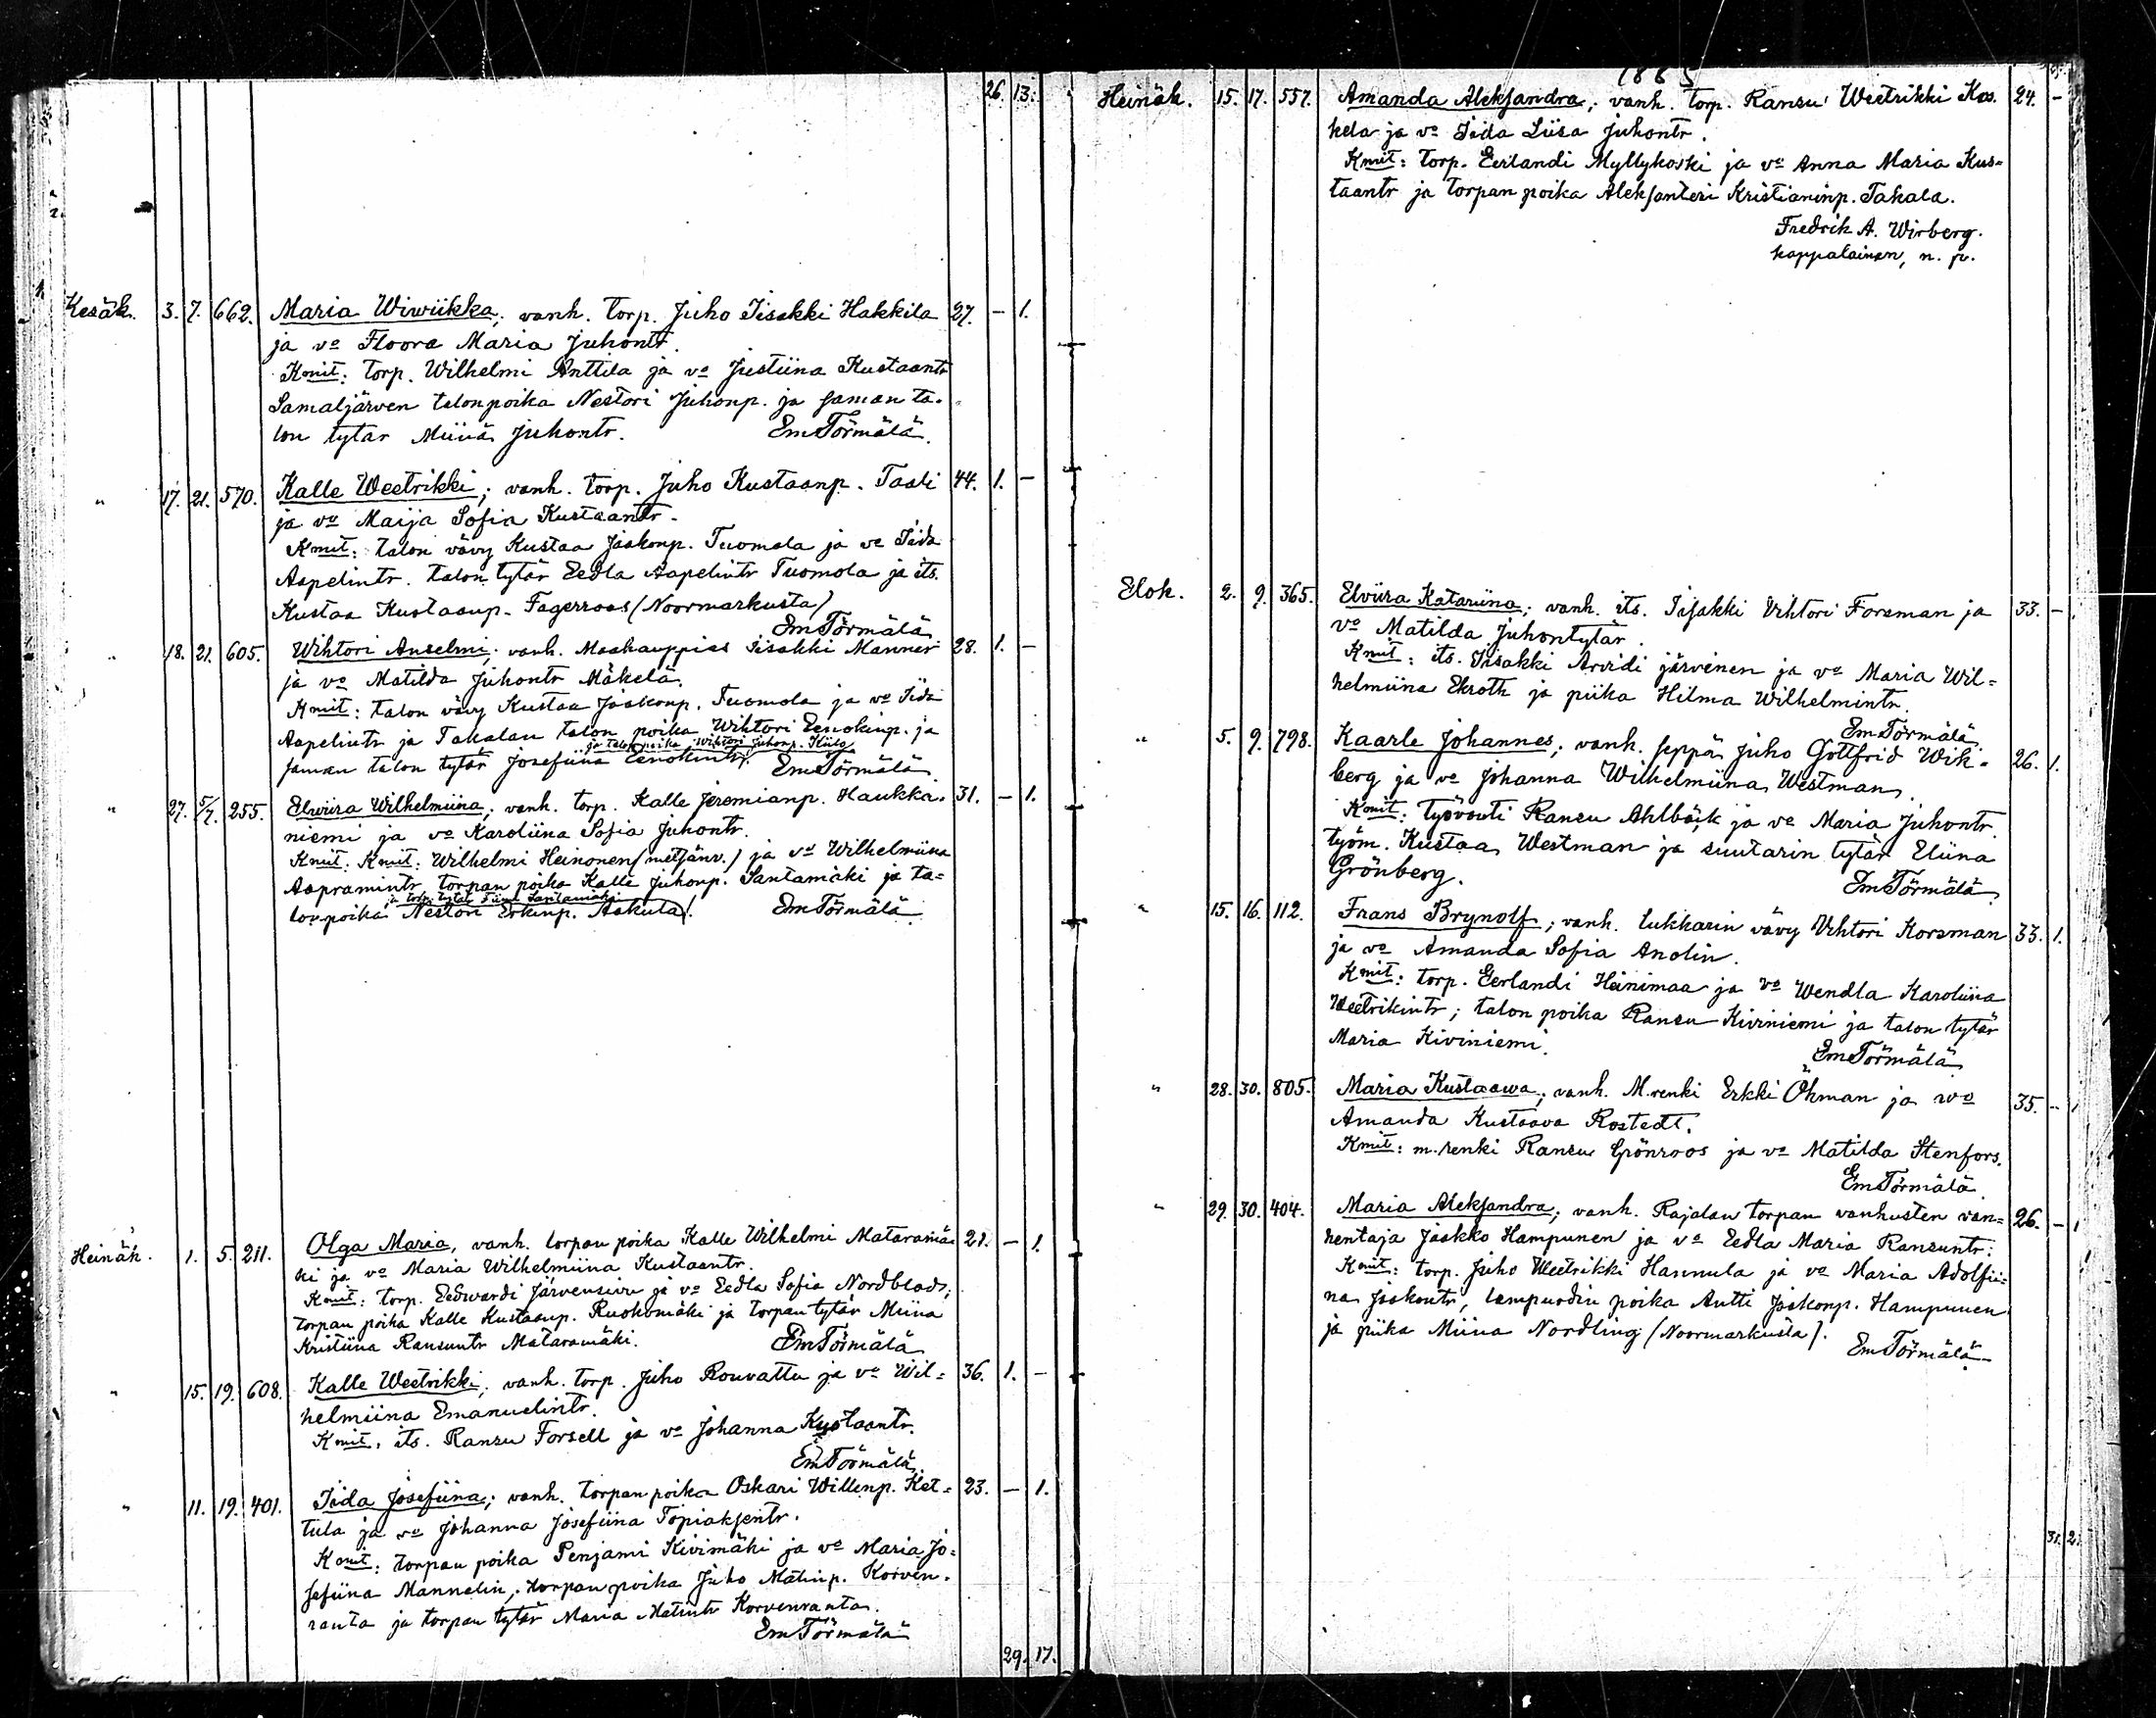 26. 13.
Kesäk. 3. 7. 662. Maria Wiwiikka; vanh. torp. Juho Iisakki Hakkila 27. – 1.
ja vo Floora Maria Juhontr.
Kmit: torp. Wilhelmi Anttila ja vo Justiina Kustaantr
Samaljärven talonpoika Nestori Juhonp. ja saman ta-
lon tytär Miinä Juhontr. Em Törmälä.
" 17. 21. 570. Kalle Weetrikki; vanh. torp. Juho Kustaanp. Taali 44. 1. –
ja vo Maija Sofia Kustaantr.
Kmit: talon vävy Kustaa Jaakonp. Tuomola ja vo Iida
Aapelintr. talon tytär Eedla Aapelintr Tuomola ja its.
Kustaa Kustaanp. Fagerroos (Noormarkusta)
Em Törmälä
" 18. 21. 605. Wihtori Anselmi; vanh. Maakauppias Iisakki Manner 28. 1. –
ja vo Matilda Juhontr Mäkelä.
Kmit: talon vävy Kustaa Jaakonp. Tuomola ja vo Iida
Aapelintr ja Takalan talon poika Wihtori Eenokinp. ja
ja talon poika Wihtori Juhonp. Kiilo
saman talon tytär Josefiina Eenokintr. Em Törmälä
" 27. 5/7. 255. Elwiira Wilhelmiina; vanh. torp. Kalle Jeremianp. Haukka- 31. – 1.
niemi ja vo Karoliina Sofia Juhontr.
Kmit. Kmit: Wilhelmi Heinonen (metsänv.) ja vo Wilhelmiina
Aapramintr, torpan poika Kalle Juhonp. Santamäki ja ta-
ja torp. tytär Tiina Santamäki
lonpoika Nestori Erkinp. Askula. Em Törmälä
Heinäk. 1. 5. 211. Olga Maria, vanh. torpan poika Kalle Wilhelmi Matarämä- 21. – 1.
ki ja vo Maria Wilhelmiina Kustaantr.
Kmit: torp. Eedwardi Järvensivu ja vo Eedla Sofia Nordblads;
torpan poika Kalle Kustaanp. Ruokomäki ja torpan tytär Miina
Kristiina Ransuntr Mataramäki. Em Törmälä
" 15. 19. 608. Kalle Weetrikki; vanh. torp. Juho Rouvattu ja vo Wil= 36. 1. –
helmiina Emanuelintr.
Kmit. its. Ransu Forsell ja vo Johanna Kustaantr.
Em Törmälä.
" 11. 19. 401. Iida Josefiina; vanh. torpan poika Oskari Willenp. Ket= 23. – 1.
tula ja vo Johanna Josefiina Topiaksentr.
Kmit: torpan poika Penjami Kivimäki ja vo Maria Jo=
sefiina Mannelin; torpan poika Juho Matinp. Korven-
ranta ja torpan tytär Maria Matintr Korvenranta.
Em Törmälä
29. 17.
1885
Heinäk. 15. 17. 557. Amanda Aleksandra; vanh. torp. Ransu Weetrikki Kos- 24. –
kela ja vo Iida Liisa Juhontr.
Kmit: torp. Eerlandi Myllykoski ja vo Anna Maria Kus=
taantr ja torpan poika Aleksanteri Kristianinp. Takala.
Fredrik A. Wirberg.
kappalainen, n. p.
Elok. 2. 9. 365. Elviira Katariina; vanh. its. Iisakki Vihtori Forsman ja 33. –
vo Matilda Juhontytär.
Kmit: its. Iisakki Arvidi järvinen ja vo Maria Wil=
helmiina Ekroth ja piika Hilma Wilhelmintr.
Em Törmälä
" 5. 9. 798. Kaarle Johannes; vanh. seppä Juho Gottfrid Wik- 26. 1.
berg ja vo Johanna Wilhelmiina Westman.
Kmit: työvouti Ransu Ahlbäck ja vo Maria Juhontr.
työm. Kustaa Westman ja suutarin tytär Eliina
Grönberg. Em Törmälä
" 15. 16. 112. Frans Brynolf; vanh. lukkarin vävy Vihtori Korsman 33. 1.
ja vo Amanda Sofia Anolin.
Kmit: torp. Eerlandi Heinimaa ja vo Wendla Karoliina
Weetrikintr; talon poika Ransu Kiviniemi ja talon tytär
Maria Kiviniemi. Em Törmälä
" 28. 30. 805. Maria Kustaawa; vanh. M.renki Erkki Öhman ja wo 35. –
Amanda Kustaava Rostedt.
Kmit: m.renki Ransu Grönroos ja vo Matilda Stenfors.
Em Törmälä.
" 29. 30. 404. Maria Aleksandra; vanh. Rajalan torpan vanhusten van= 26. –
hentaja Jaakko Hampunen ja vo Eedla Maria Ransuntr.
Kmit: torp. Juho Weetrikki Hannula ja vo Maria Adolfii=
na Jaakontr, lampuodin poika Antti Jaakonp. Hampunen
ja piika Miina Nordling (Noormarkusta). Em Törmälä
31. 2